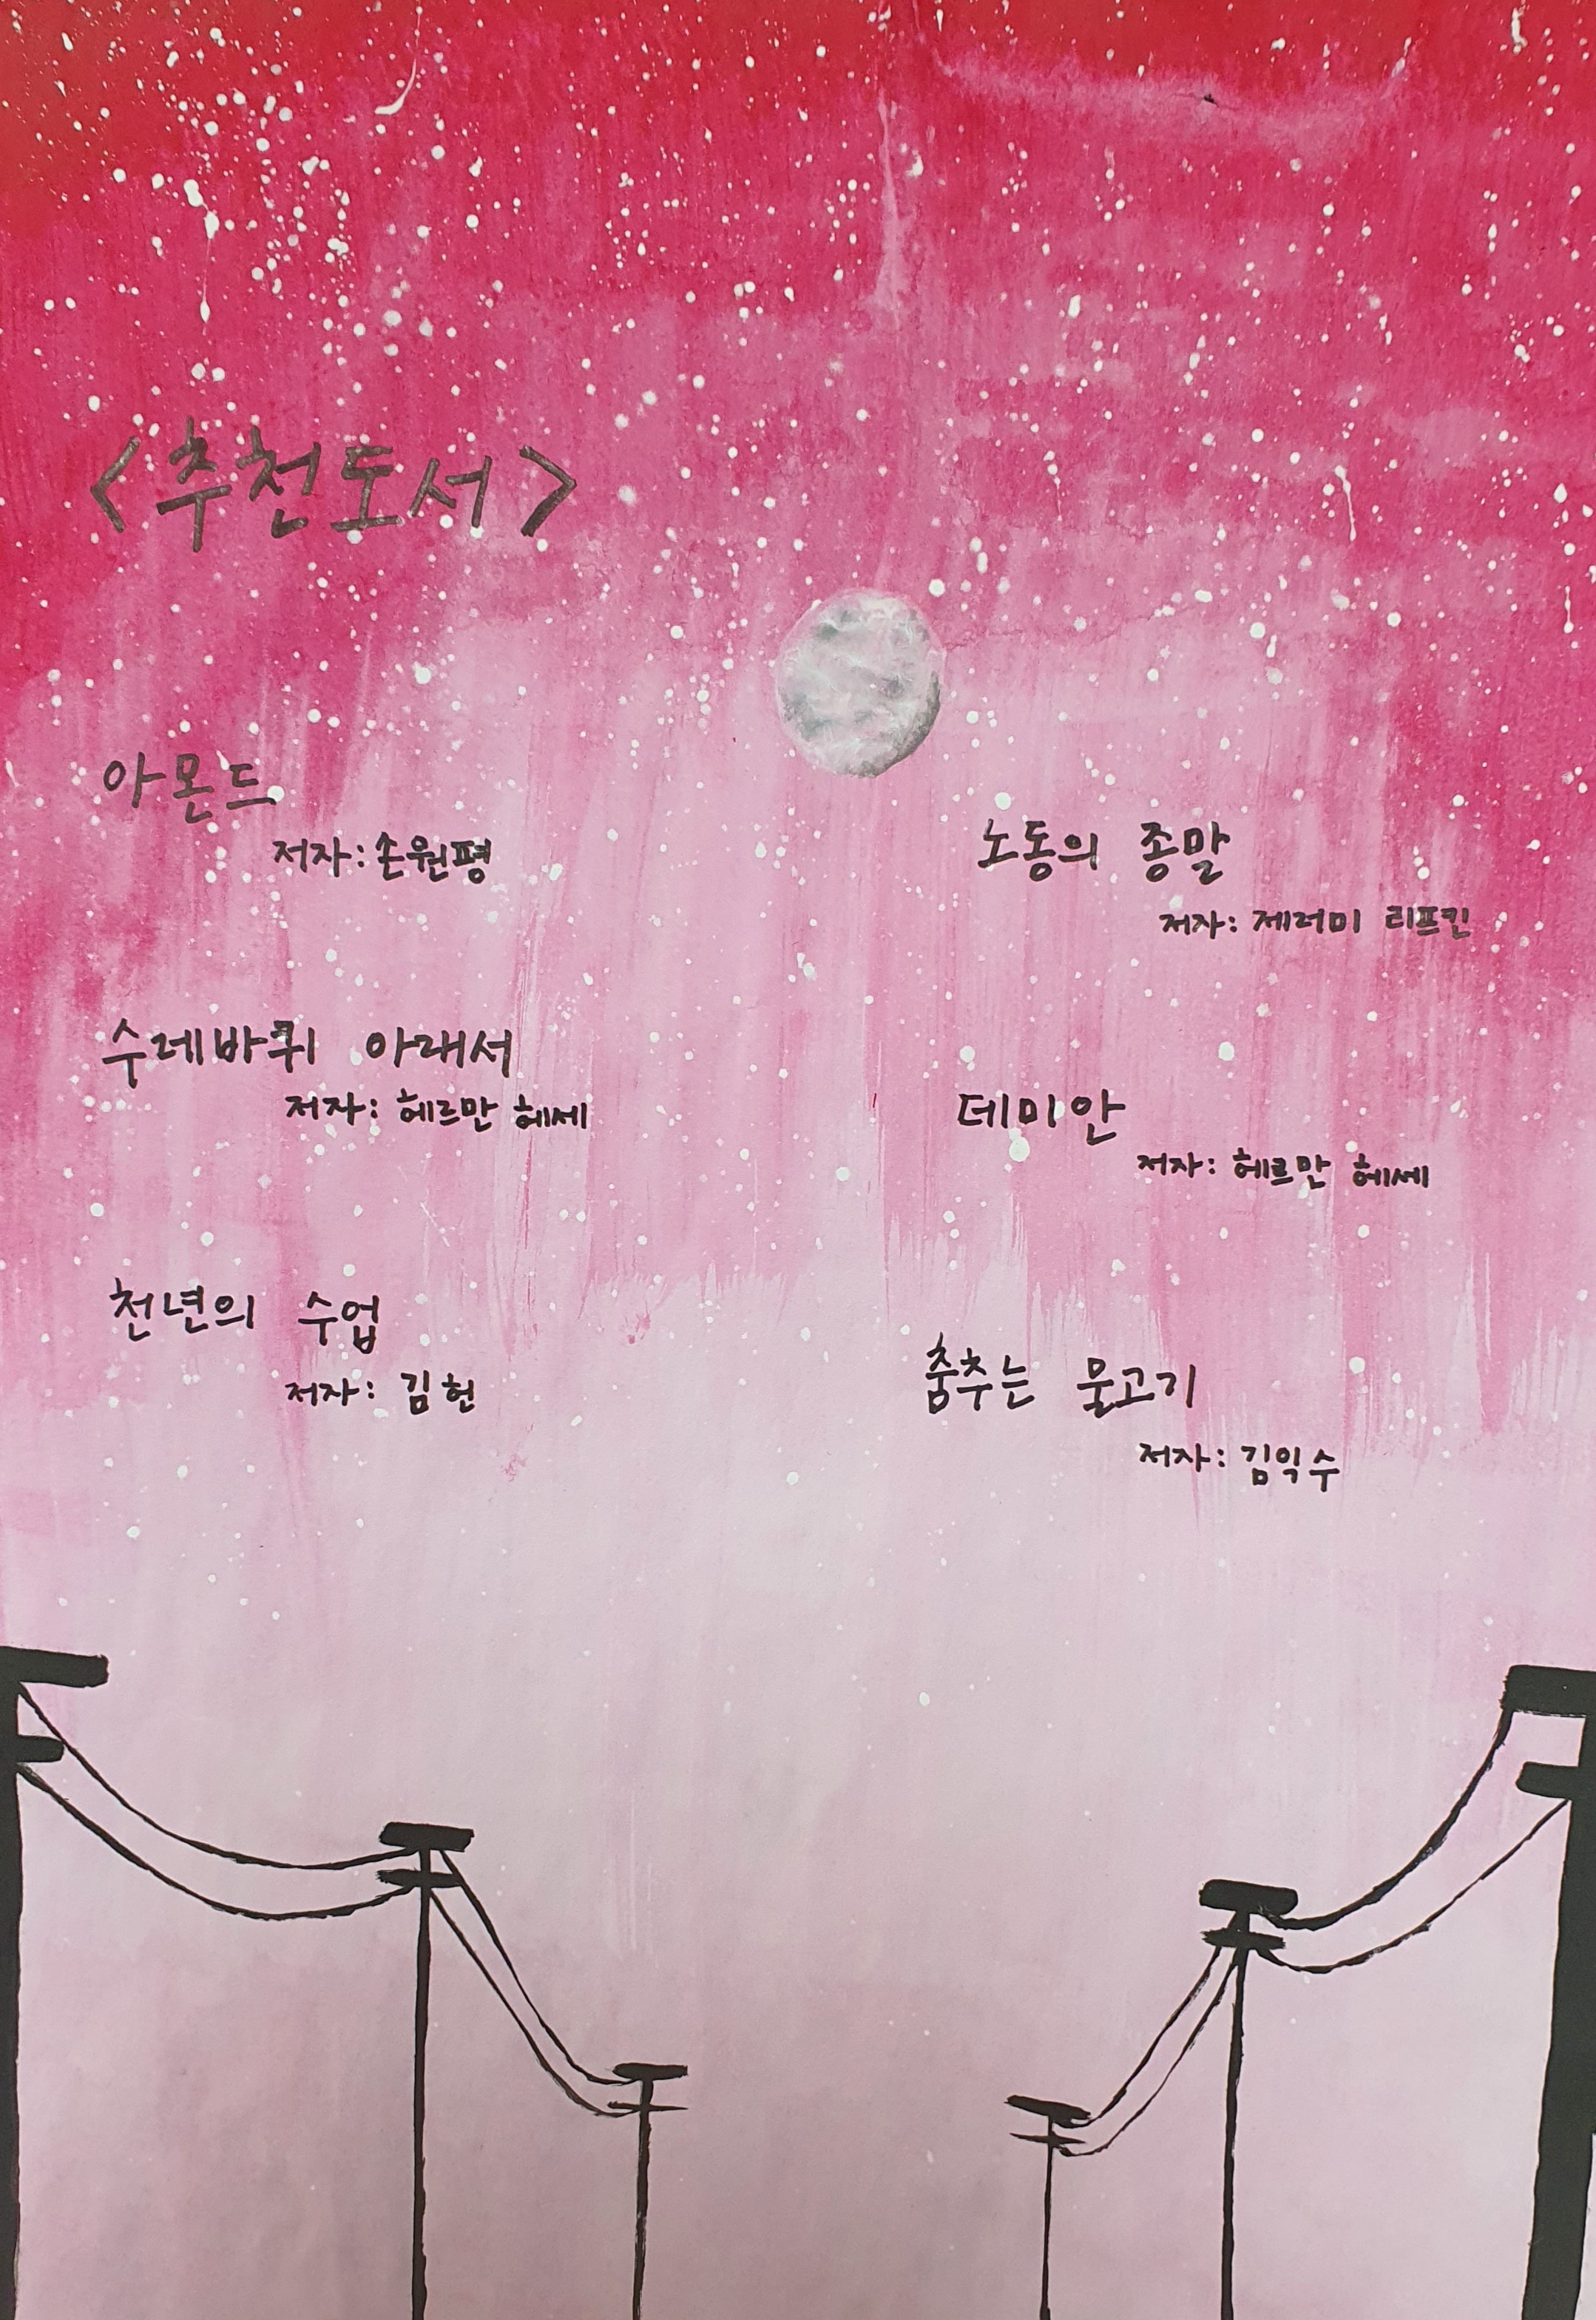 <추천도서>
아몬드
저자: 손원평
수레바퀴 아래서
저자: 헤르만 헤세
천년의 수업
저자: 김헌
노동의 종말
저자: 제러미 리프킨
데미안
저자: 헤르만 헤세
춤추는 물고기
저자: 김익수